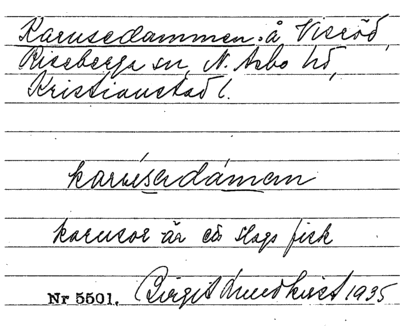 Karusedammen. å Viseöd,
Riseberga sn, N. Åsbo hd,
Kristianstad l.
karúsedámen
karusor är en slags fisk
Nr 5501. Birgit Lundkvist 1935